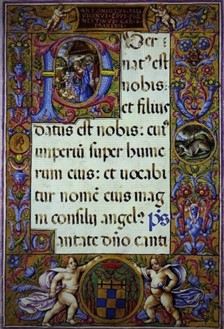 Puer
natꝰ est
nobis:
et filius
datus est nobis: cuiꝰ
imperiū super hume
rum eius: et vocabi
tur nomē eius mag
ni consilii angelꝰ ps
Cantate dño canti